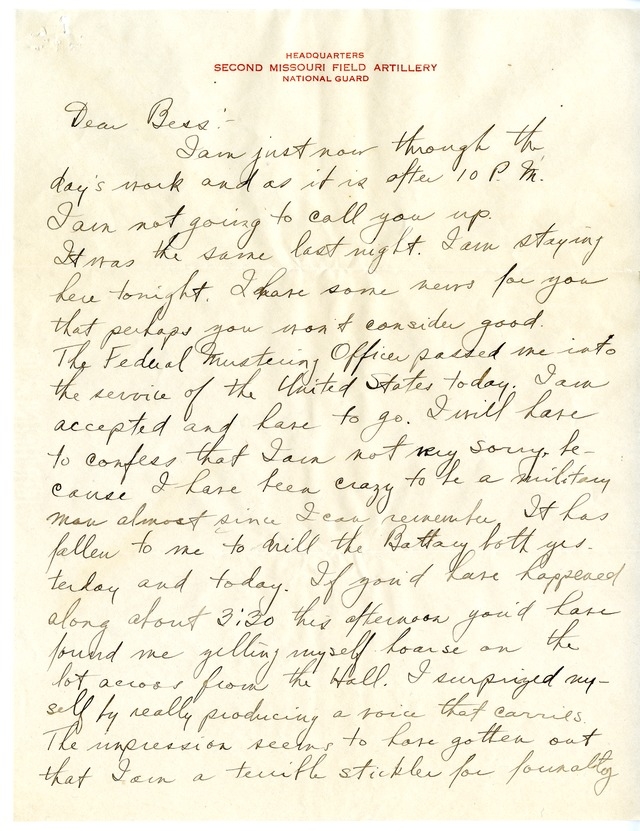 HEADQUARTERS
SECOND MISSOURI FIELD ARTILLERY
NATIONAL GUARD
Dear Bess:-
I am just now through the
day's work and as it is after 10 P.M.
I am not going to call you up.
It was the same last night. I am staying
here tonight. I have some news for you
that perhaps you won't consider good.
The Federal Mustering Officer passed me into
the service of the United States today. I am
accepted and have to go. I will have
to confess that I am not very sorry, be-
cause I have been crazy to be a military
man almost since I can remember. It has
fallen to me to drill the Battary both yes-
terday and today. If you'd have happened
along about 3:30 this afternoon you'd have
found me yelling myself hoarse on the
lot across from the Hall. I surprized my-
self by really producing a voice that carries.
The impression seems to have gotten out
that I am a terrible stickler for formality